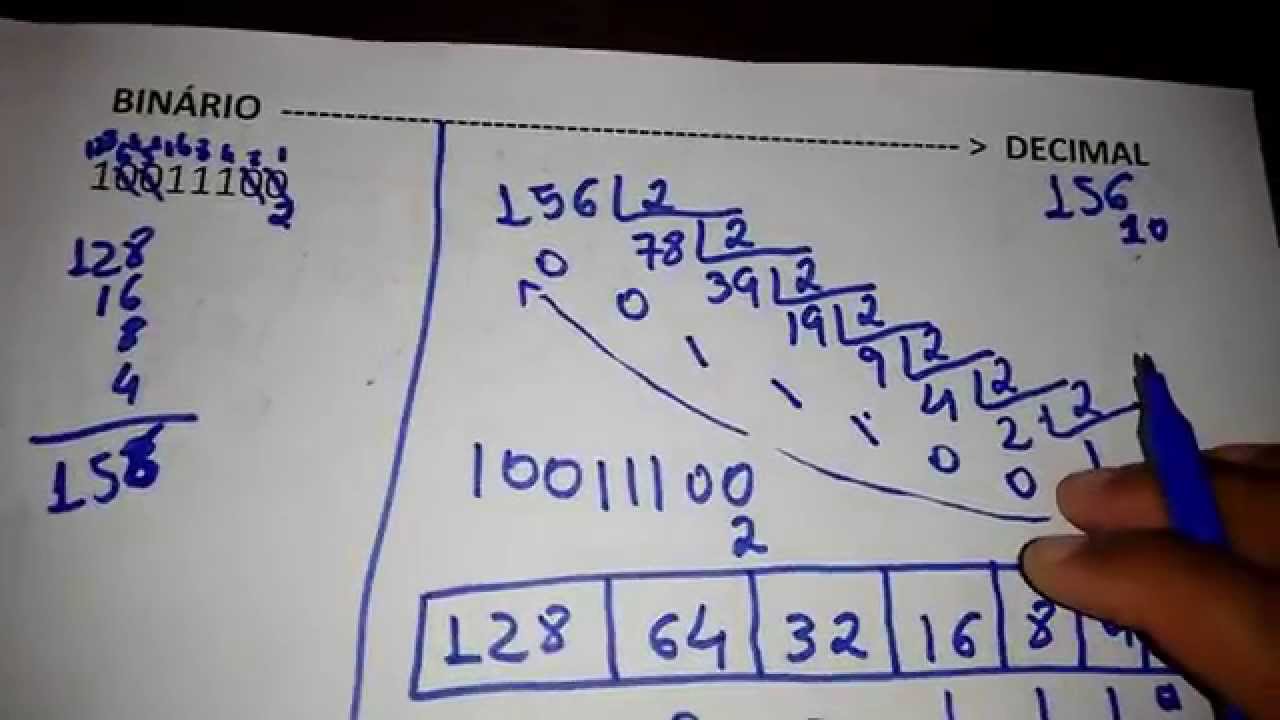 BINÁRIO ---------------------> DECIMAL
10011100
2
128
16
8
4
156
156 10
156 2
78 2
39 2
19 2
9 2
4 2
2 2
1
0 0 1 1 1 0 0
10011100
2
128 64 32 16 8 4
1 1 1 0